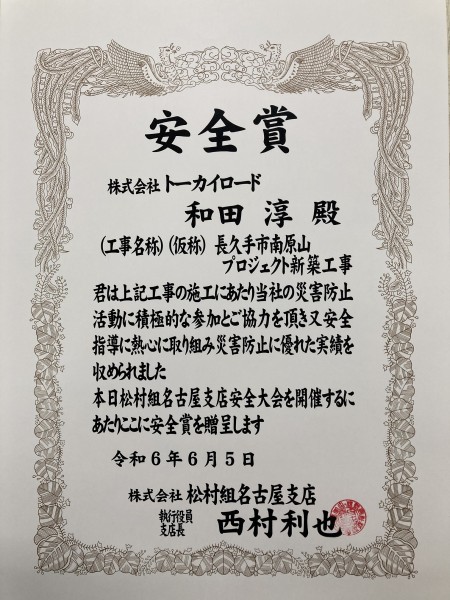 安全賞
株式会社 トーカイロード
和田 淳 殿
(工事名称)(仮称) 長久手市南原山
プロジェクト新築工事
君は上記工事の施工にあたり当社の災害防止
活動に積極的な参加とご協力を頂き又安全
指導に熱心に取り組み災害防止に優れた実績を
収められました
本日松村組名古屋支店安全大会を開催するに
あたりここに安全賞を贈呈します
令和6年6月5日
株式会社 松村組名古屋支店
執行役員
支店長 西村利也